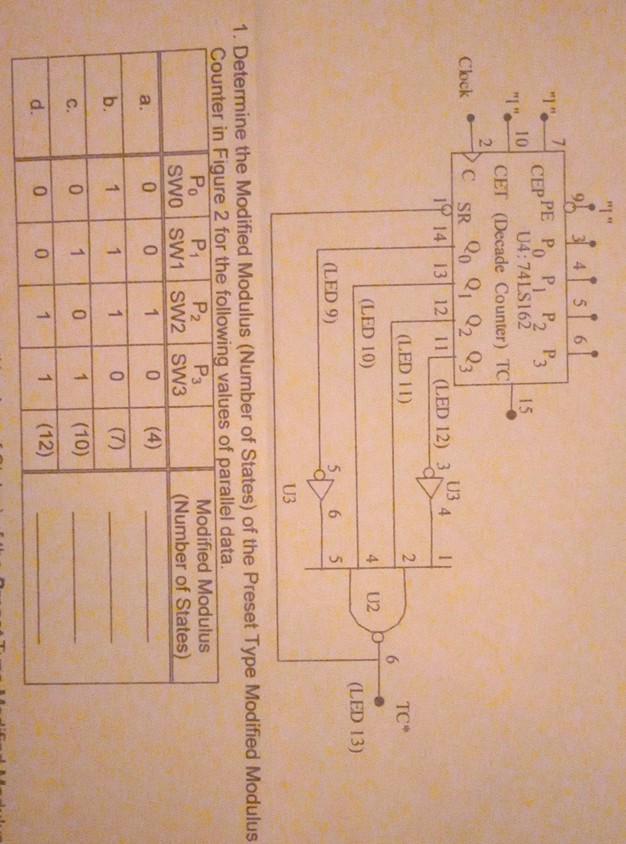 "1"
9 3 4 5 6
"1" 7 CEP PE P0 P1 P2 P3
U4:74LS162
"1" 10 CET (Decade Counter) TC 15
Clock 2 C SR Q0 Q1 Q2 Q3
1 14 13 12 11
(LED 12) 3 U3 4 1
(LED 11) 2
(LED 10) 4 U2 6 TC*
(LED 9) 5 6 5 (LED 13)
U3
1. Determine the Modified Modulus (Number of States) of the Preset Type Modified Modulus
Counter in Figure 2 for the following values of parallel data.
P0 P1 P2 P3 Modified Modulus
SW0 SW1 SW2 SW3 (Number of States)
a. 0 0 1 0 (4)
b. 1 1 1 0 (7)
c. 0 1 0 1 (10)
d. 0 0 1 1 (12)